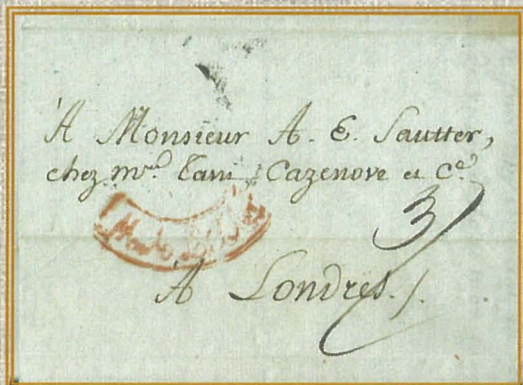 A Monsieur A. E. Sautter,
chez mrs. Cazenove et Ce.
3/
A Londres./.